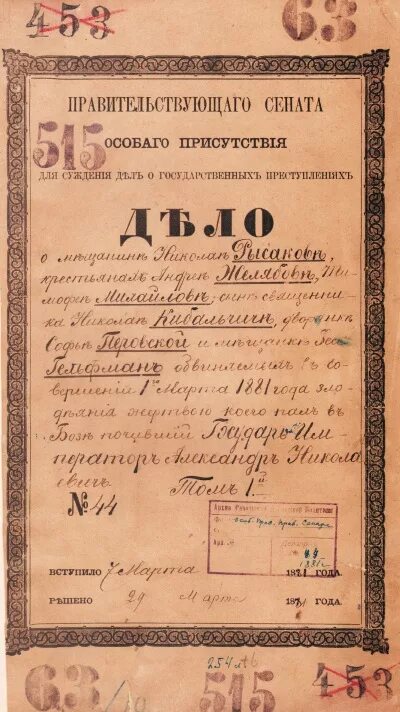 453
63
ПРАВИТЕЛЬСТВУЮЩАГО СЕНАТА
515
ОСОБАГО ПРИСУТСТВІЯ
ДЛЯ СУЖДЕНІЯ ДѢЛЪ О ГОСУДАРСТВЕННЫХЪ ПРЕСТУПЛЕНІЯХЪ
ДѢЛО
о мѣщанинѣ Николаѣ Рысаковѣ,
крестьянахъ Андреѣ Желябовѣ, Ти-
мофеѣ Михайловѣ, сынѣ священни-
ка Николаѣ Кибальчичѣ, дворянкѣ
Софьѣ Перовской и мѣщанкѣ Гесѣ
Гельфманъ обвиняемыхъ въ со-
вершеніи 1го Марта 1881 года зло-
дѣянія жертвою коего палъ въ
Бозѣ почившій Государь Им-
ператоръ Александръ Никола-
евичъ
Томъ Iй
№ 44
Особ. Прис. Прав. Сената
Арх. №
44
1881 г.
ВСТУПИЛО 7 Марта 1881 ГОДА.
РѢШЕНО 29 Марта 1881 ГОДА.
63
515
453